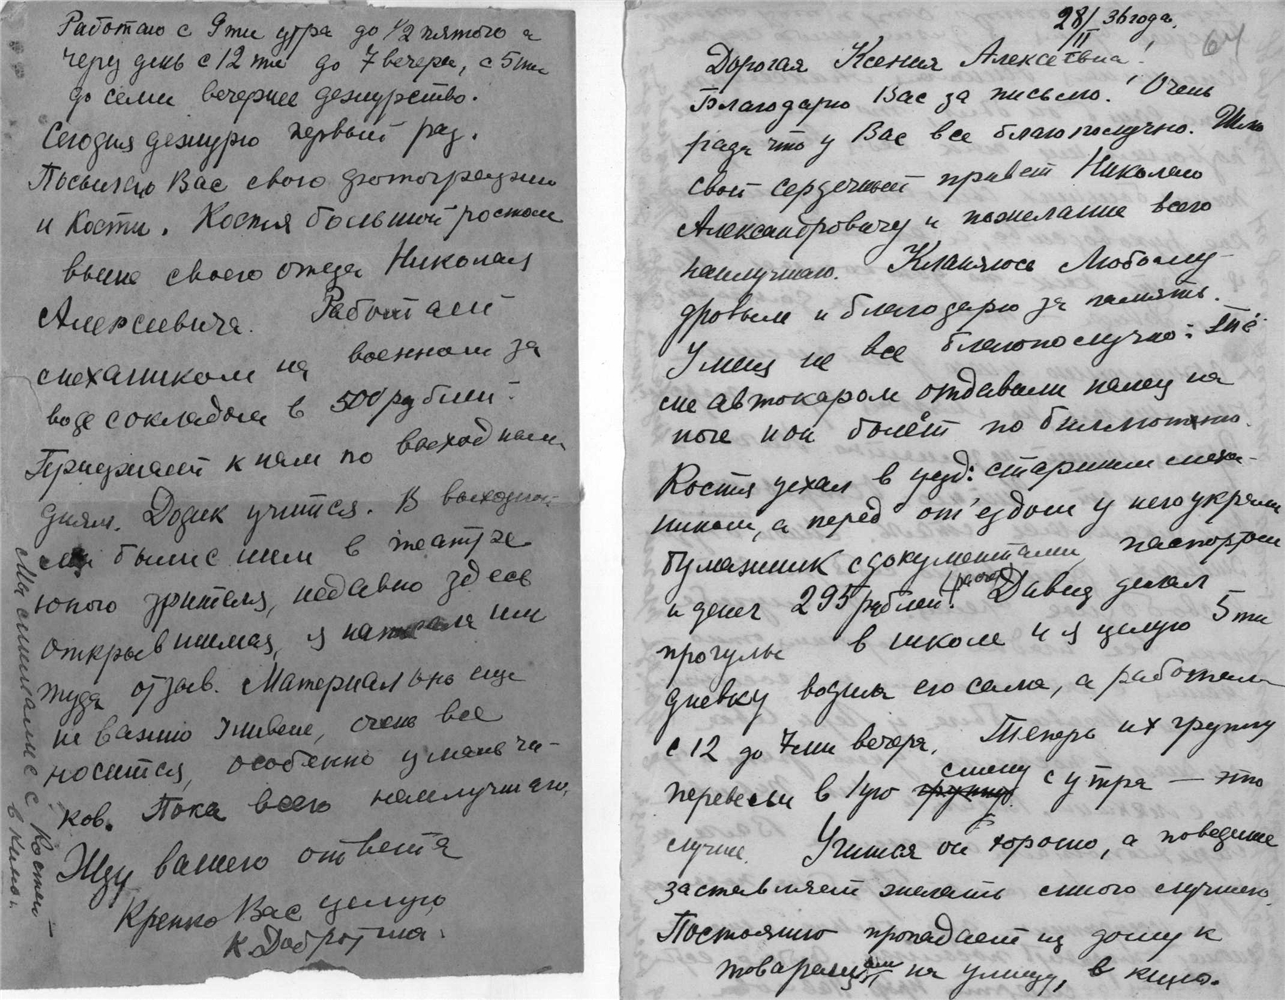 Работаю с 9ти утра до 1/2 пятого а
через день с 12ти до 7 вечера, с 5ти
до семи вечернее дежурство.
Сегодня дежурю первый раз.
Посылаю Вас свою фотографию
и Кости. Костя большой ростом
выше своего отца Николая
Алексеевича. Работает
механиком на военном за
воде с окладом в 500 рублей.
Приезжает к нам по выходным
дням. Додик учится. В выходной
мы были с ним в театре
юного зрителя, недавно здесь
открывшимся, я написала им
туда отзыв. Материально еще
не важно живем, очень все
носится, особенно у мальчи-
ков. Пока всего наилучшаго,
Жду вашего ответа
Крепко Вас целую
К Добротина.
Мы снимались с Костей
в Кимо.
28/II 36 года.
64
Дорогая Ксения Алексевна!
Благодарю Вас за письмо! Очень
рада что у Вас все благополучно. Шлю
свой сердечный привет Николаю
Александровичу и пожелание всего
наилучшаго. Кланяюсь Любому-
дровым и благодарю за память.
У меня не все благополучно:
автокаром отдавили палец на
ноге и он болёт по
Костя уехал в уезд: старшим меха-
ником, а перед от'ездом у него украли
бумажник с документами, паспортом
и денег 295 рублей. Давид делал
прогулы в школе и я целую 5ти
дневку водила его сама, а работала
с 12 до 7ми вечера. Теперь их группу
перевели в 1ую группу смену с утра — это
лучше. Учится он хорошо, а поведение
заставляет желать много лучшего.
Постоянно пропадает из дому к
товарищам на улицу, в кино.